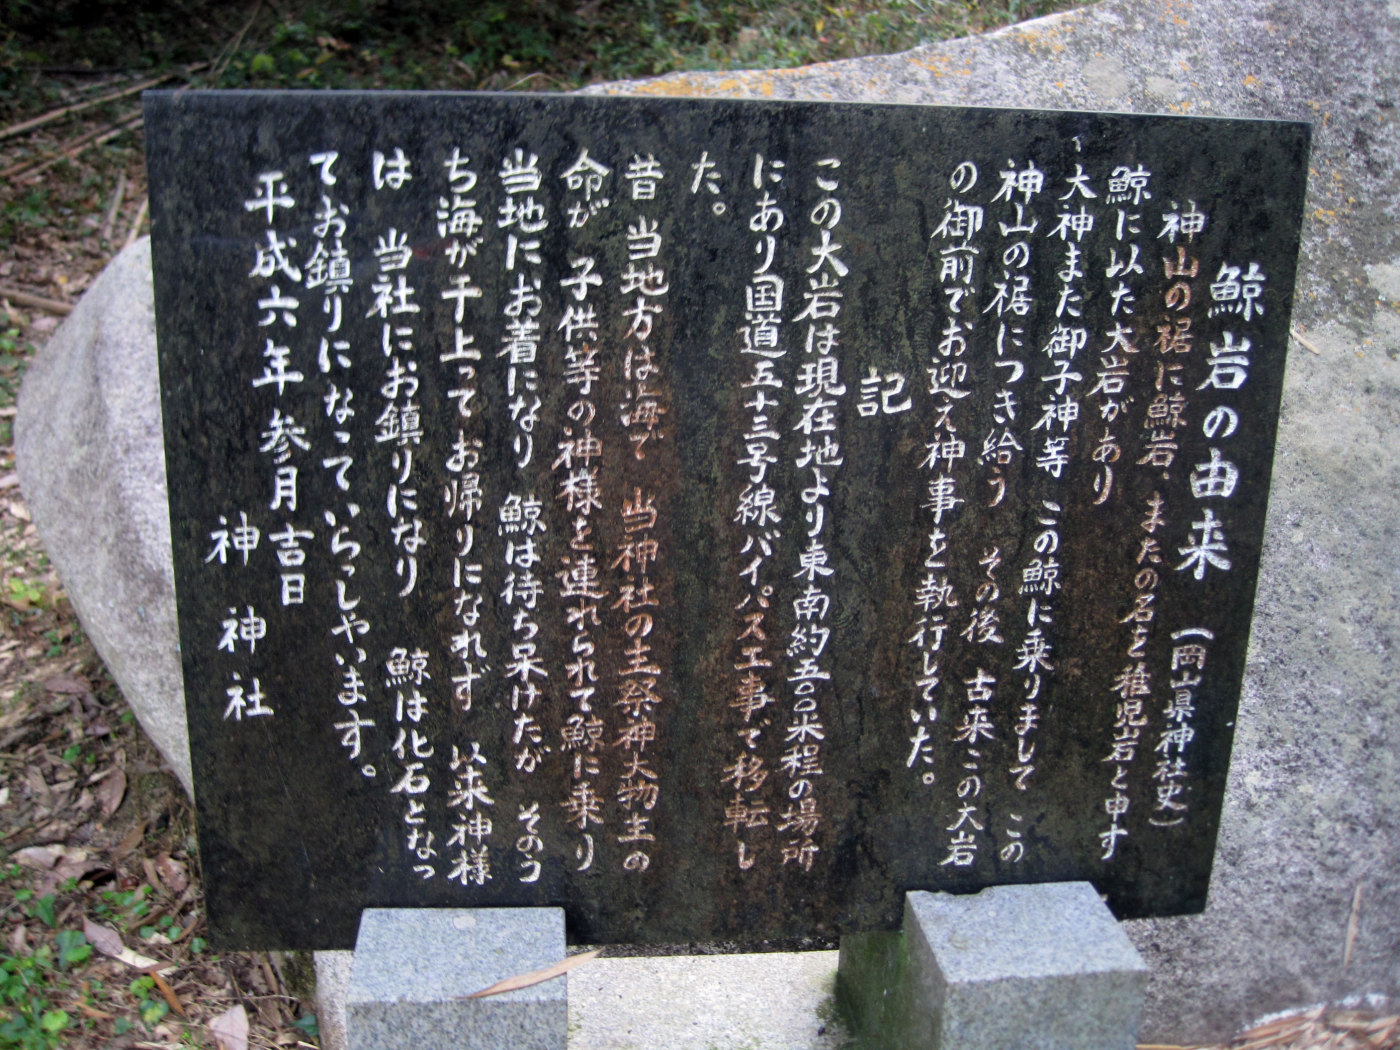 鯨岩の由来（岡山県神社史）
神山の裾に鯨岩、またの名を稚児岩と申す
鯨に以た大岩があり
、大神また御子神等　この鯨に乗りまして　この
神山の裾につき給う　その後　古来この大岩
の御前でお迎え神事を執行していた。
記
この大岩は現在地より東南約五〇〇米程の場所
にあり国道五十三号線バイパス工事で移転し
た。
昔　当地方は海で　当神社の主祭神大物主の
命が　子供等の神様を連れられて鯨に乗り
当地にお着になり　鯨は待ち呆けたが　そのう
ち海が干上ってお帰りになれず　以来神様
は　当社にお鎮りになり　鯨は化石となっ
てお鎮りになっていらっしゃいます。
平成六年参月吉日
神神社